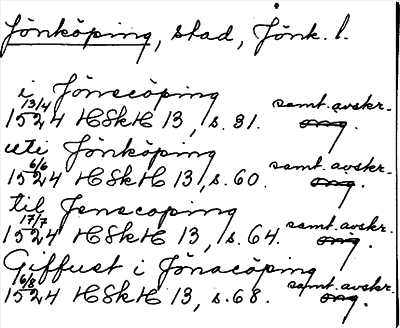 Jönköping, stad, Jönk. l.
i Jönscöping
13/4 samt. avskr.
1524 HSkH 13, s. 81. orig.
uti Jönköping
6/6 samt. avskr.
1524 HSkH 13, s. 60. orig.
til Jenscoping
17/7 samt. avskr.
1524 HSkH 13, s. 64. orig.
Giffuet i Jönacöping
6/8 samt. avskr.
1524 HSkH 13, s. 68. orig.